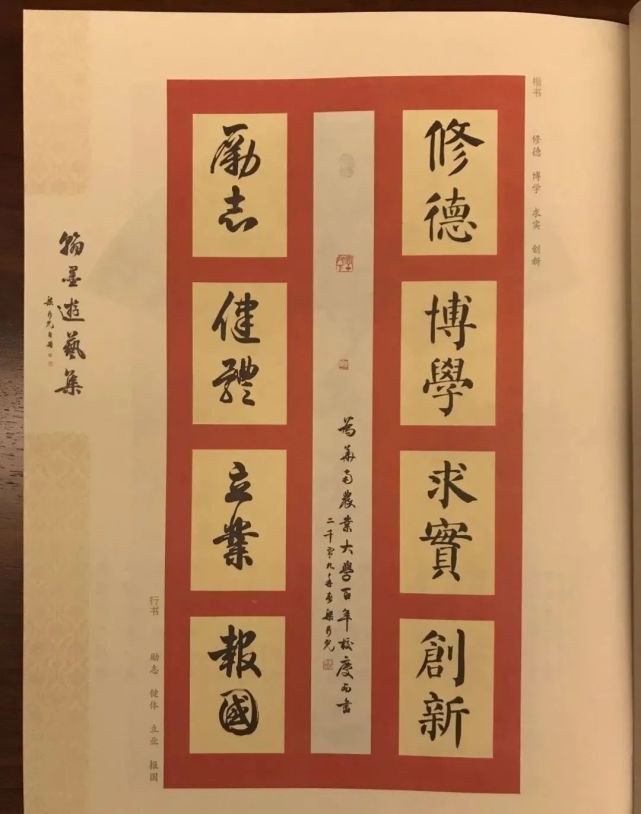 楷书 修德 博学 求实 创新
修德
博學
求實
創新
為華南農業大學百年校慶而書
二千零九年春 梁乃允
勵志
健體
立業
報國
行书 励志 健体 立业 报国
翰墨遊藝集